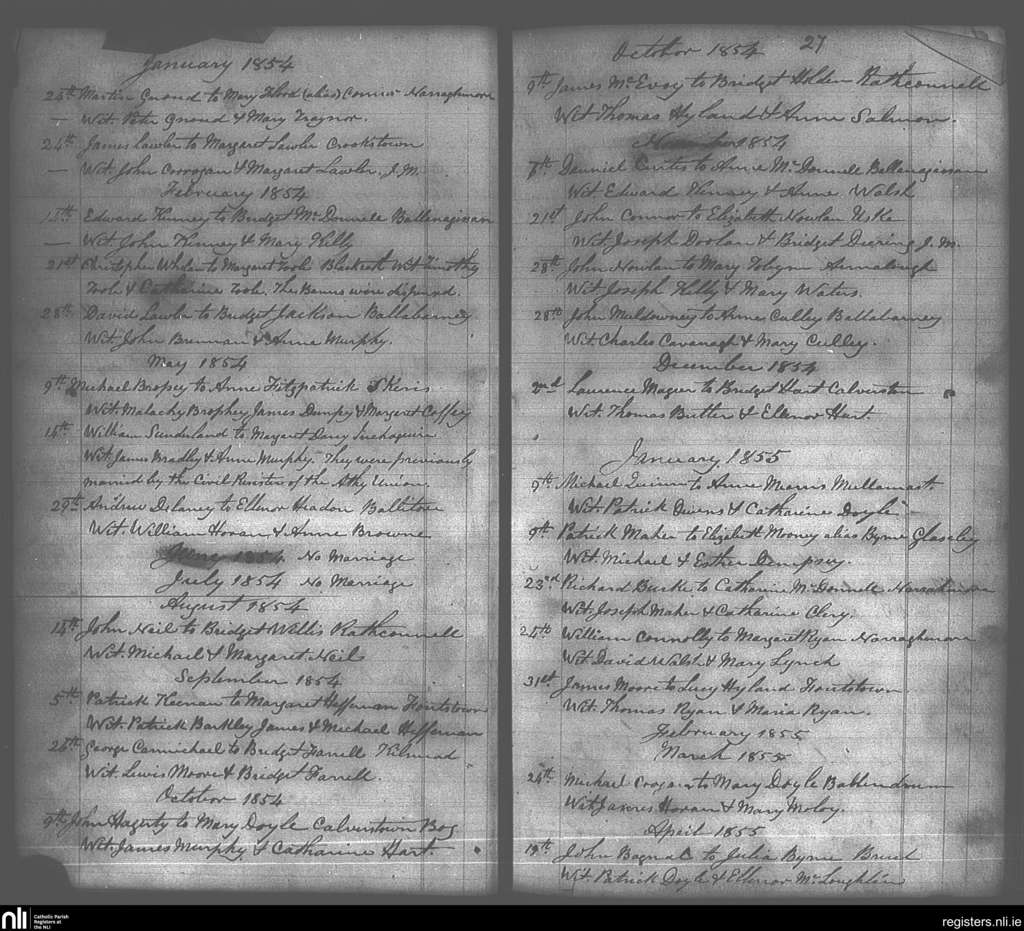 January 1854
24th Martin Ground to Mary (alias) Connor Narraghmore
Wit. Peter Ground & Mary Traynor.
24th James Lawler to Margaret Lawler Crookstown
Wit. John Corrogan & Margaret Lawler, J.M.
February 1854
Edward Kinney to Bridget McDonnell Ballenagissan
Wit. John Kinney & Mary Kelly
21st Christopher Whelan to Margaret Toole Wit Timothy
Toole & Catharine Toole. The Banns were dispensed.
28th David Lawler to Bridget Jackson Ballabarney
Wit. John Brennan & Anne Murphy.
May 1854
9th Michael Bropsey to Anne Fitzpatrick Skeris
Wit. Malachy Brophey James Dempsy & Margaret Coffey
14th William Sunderland to Margaret Darcy
Wit. James Bradly & Anne Murphy. They were previously
married by the Civil Registers of the Athy Union.
29th Andrew Delaney to Ellenor Headon Baltitore
Wit. William Horan & Anne Browne
June 1854 No Marriage
July 1854 No Marriage
August 1854
14th John Neil to Bridget Willis Rathconnell
Wit. Michael & Margaret Neil
September 1854
5th Patrick Keenan to Margaret Heffernan Fontstown
Wit. Patrick Barkley James & Michael Heffernan
26th George Carmichael to Bridget Farrell Kilmead
Wit. Lewis Moore & Bridget Farrell.
October 1854
9th John Hagerty to Mary Doyle Calverstown Bog
Wit. James Murphy & Catharine Hart.
27
October 1854
9th James McEvoy to Bridget Holden Rathconnell
Wit Thomas Hyland & Anne Salmon.
November 1854
7th Danniel Curtis to Anne McDonnell Ballenagissan
Wit Edward Kinney & Anne Walsh
21st John Connor to Elizabeth Nowlan Uske
Wit. Joseph Doolan & Bridget Deering J.M.
28th John Nowlan to Mary Tobyn
Wit. Joseph Kelly & Mary Waters.
28th John Muldowney to Anne Culley Ballabarney
Wit Charles Cavanagh & Mary Culley.
December 1854
2nd Laurence Maguer to Bridget Hart Calverston
Wit. Thomas Butter & Ellenor Hart.
January 1855
9th Michael Quinn to Anne Morris Mullamast
Wit. Patrick Owens & Catharine Doyle
9th Patrick Maher to Elizabeth Mooney alias Byrne Glassely
Wit. Michael & Esther Dempsey.
23rd Richard Burke to Catharine McDonnell Narraghmore
Wit. Joseph Maher & Catharine Clery.
William Connolly to Margaret Ryan Narraghmore
Wit David Walsh & Mary Lynch
31st James Moore to Lucy Hyland Fontstown
Wit. Thomas Ryan & Maria Ryan.
February 1855
March 1855
24th Michael to Mary Doyle
Wit James Horan & Mary Moloy.
April 1855
19th John Bagnal to Julia Byrne
Wit. Patrick Doyle & Ellenor McLoughlin
nli Catholic Parish
Registers at
the NLI
registers.nli.ie